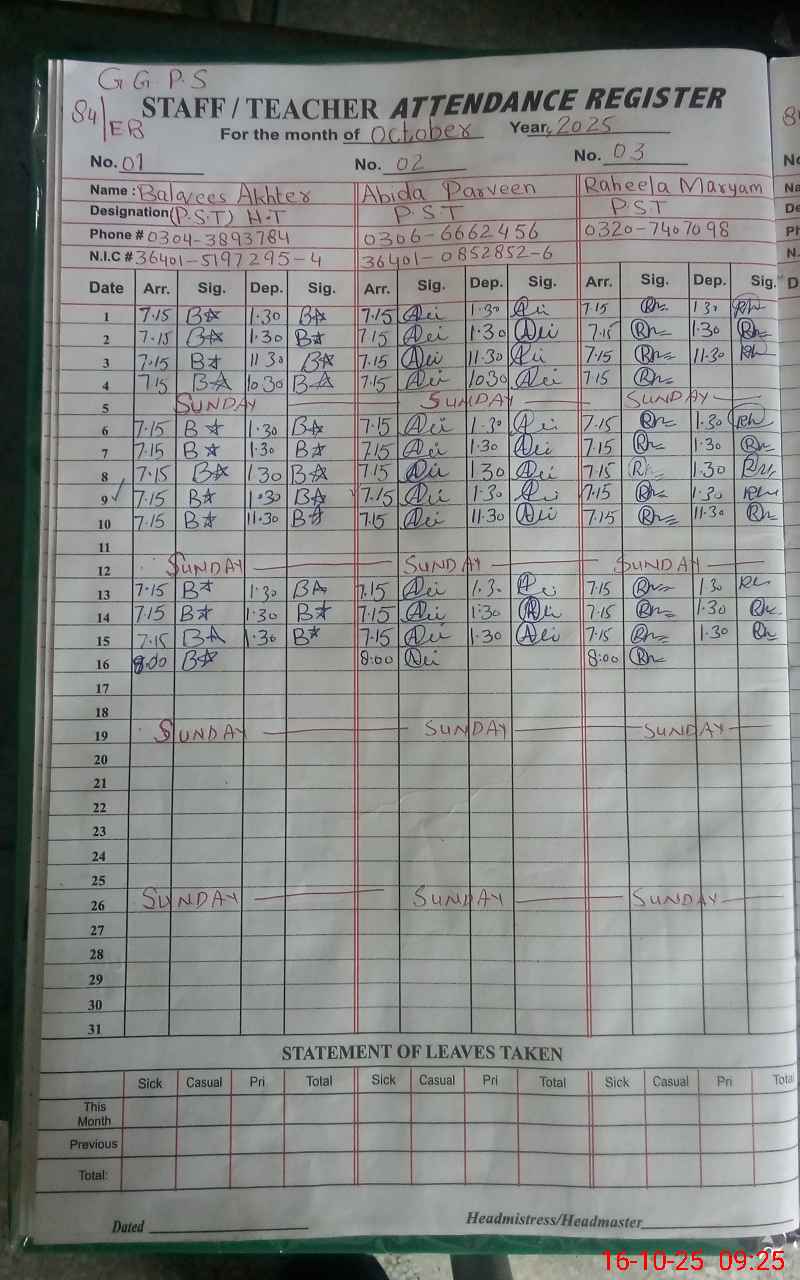 G G P S
84/EB
STAFF / TEACHER ATTENDANCE REGISTER
For the month of October Year, 2025
No. 01 No. 02 No. 03
Name : Balqees Akhter Abida Parveen Raheela Maryam
Designation (P.S.T) H.T P.S.T P.S.T
Phone # 0304-3893784 0306-6662456 0320-7407098
N.I.C # 36401-5197295-4 36401-0852852-6
Date Arr. Sig. Dep. Sig. Arr. Sig. Dep. Sig. Arr. Sig. Dep. Sig.
1 7.15 1.30 7.15 1.30 7.15 1.30
2 7.15 1.30 7.15 1.30 7.15 1.30
3 7.15 11.30 7.15 11.30 7.15 11.30
4 7.15 10.30 7.15 10.30 7.15
5 SUNDAY SUNDAY SUNDAY
6 7.15 1.30 7.15 1.30 7.15 1.30
7 7.15 1.30 7.15 1.30 7.15 1.30
8 7.15 1.30 7.15 1.30 7.15 1.30
9 7.15 1.30 7.15 1.30 7.15 1.30
10 7.15 11.30 7.15 11.30 7.15 11.30
11
12 SUNDAY SUNDAY SUNDAY
13 7.15 1.30 7.15 1.30 7.15 1.30
14 7.15 1.30 7.15 1:30 7.15 1.30
15 7.15 1.30 7.15 1.30 7.15 1.30
16 8:00 8:00 8:00
17
18
19 SUNDAY SUNDAY SUNDAY
20
21
22
23
24
25
26 SUNDAY SUNDAY SUNDAY
27
28
29
30
31
STATEMENT OF LEAVES TAKEN
Sick Casual Pri Total Sick Casual Pri Total Sick Casual Pri Total
This Month
Previous
Total:
Dated Headmistress/Headmaster
16-10-25 09:25